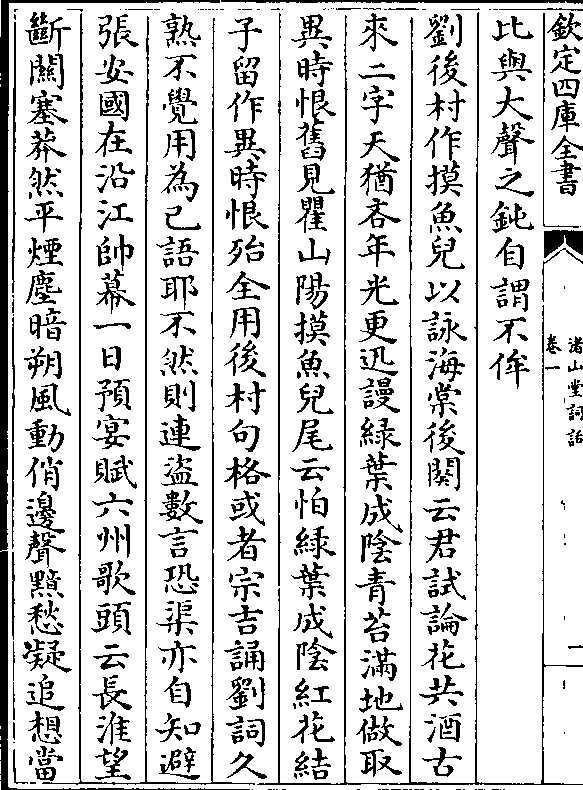 欽定四庫全書
渚山堂詞話
卷一
一
比與大聲之鈍自謂不侔
劉後村作摸魚兒以詠海棠後闋云君試論花共酒古
來二字天猶吝年光更迅謾緑葉成陰青苔滿地做取
異時恨舊見瞿山陽摸魚兒尾云怕緑葉成陰紅花結
子留作異時恨殆全用後村句格或者宗吉誦劉詞久
熟不覺用為己語耶不然則連盜數言恐渠亦自知避
張安國在沿江帥幕一日預宴賦六州歌頭云長淮望
斷關塞莽然平煙塵暗朔風動俏邊聲黯愁凝追想當